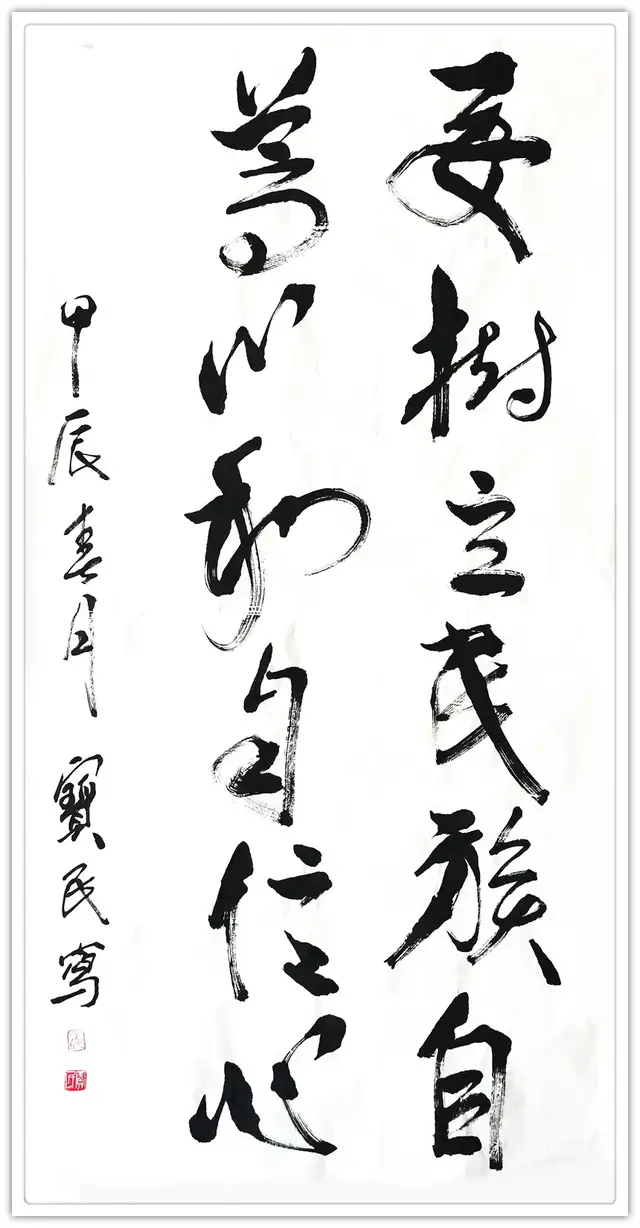 要樹立民族自
尊心和自信心
甲辰春月 寶民寫